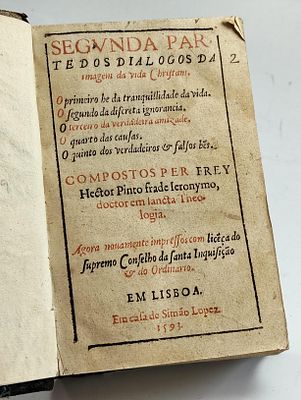 SEGVNDA PAR-
TE DOS DIALOGOS DA
imagem da vida Christam.
2
O primeiro he da tranquillidade da vida.
O segundo da discreta ignorancia.
O terceiro da verdadeira amizade.
O quarto das causas.
O quinto dos verdadeiros & falsos bẽs.
COMPOSTOS PER FREY
Hector Pinto frade Ieronymo,
doctor em sancta Theo-
logia.
Agora novamente impressos com licẽça do
supremo Conselho da santa Inquisição
& do Ordinario.
EM LISBOA.
Em casa de Simão Lopez.
1593.